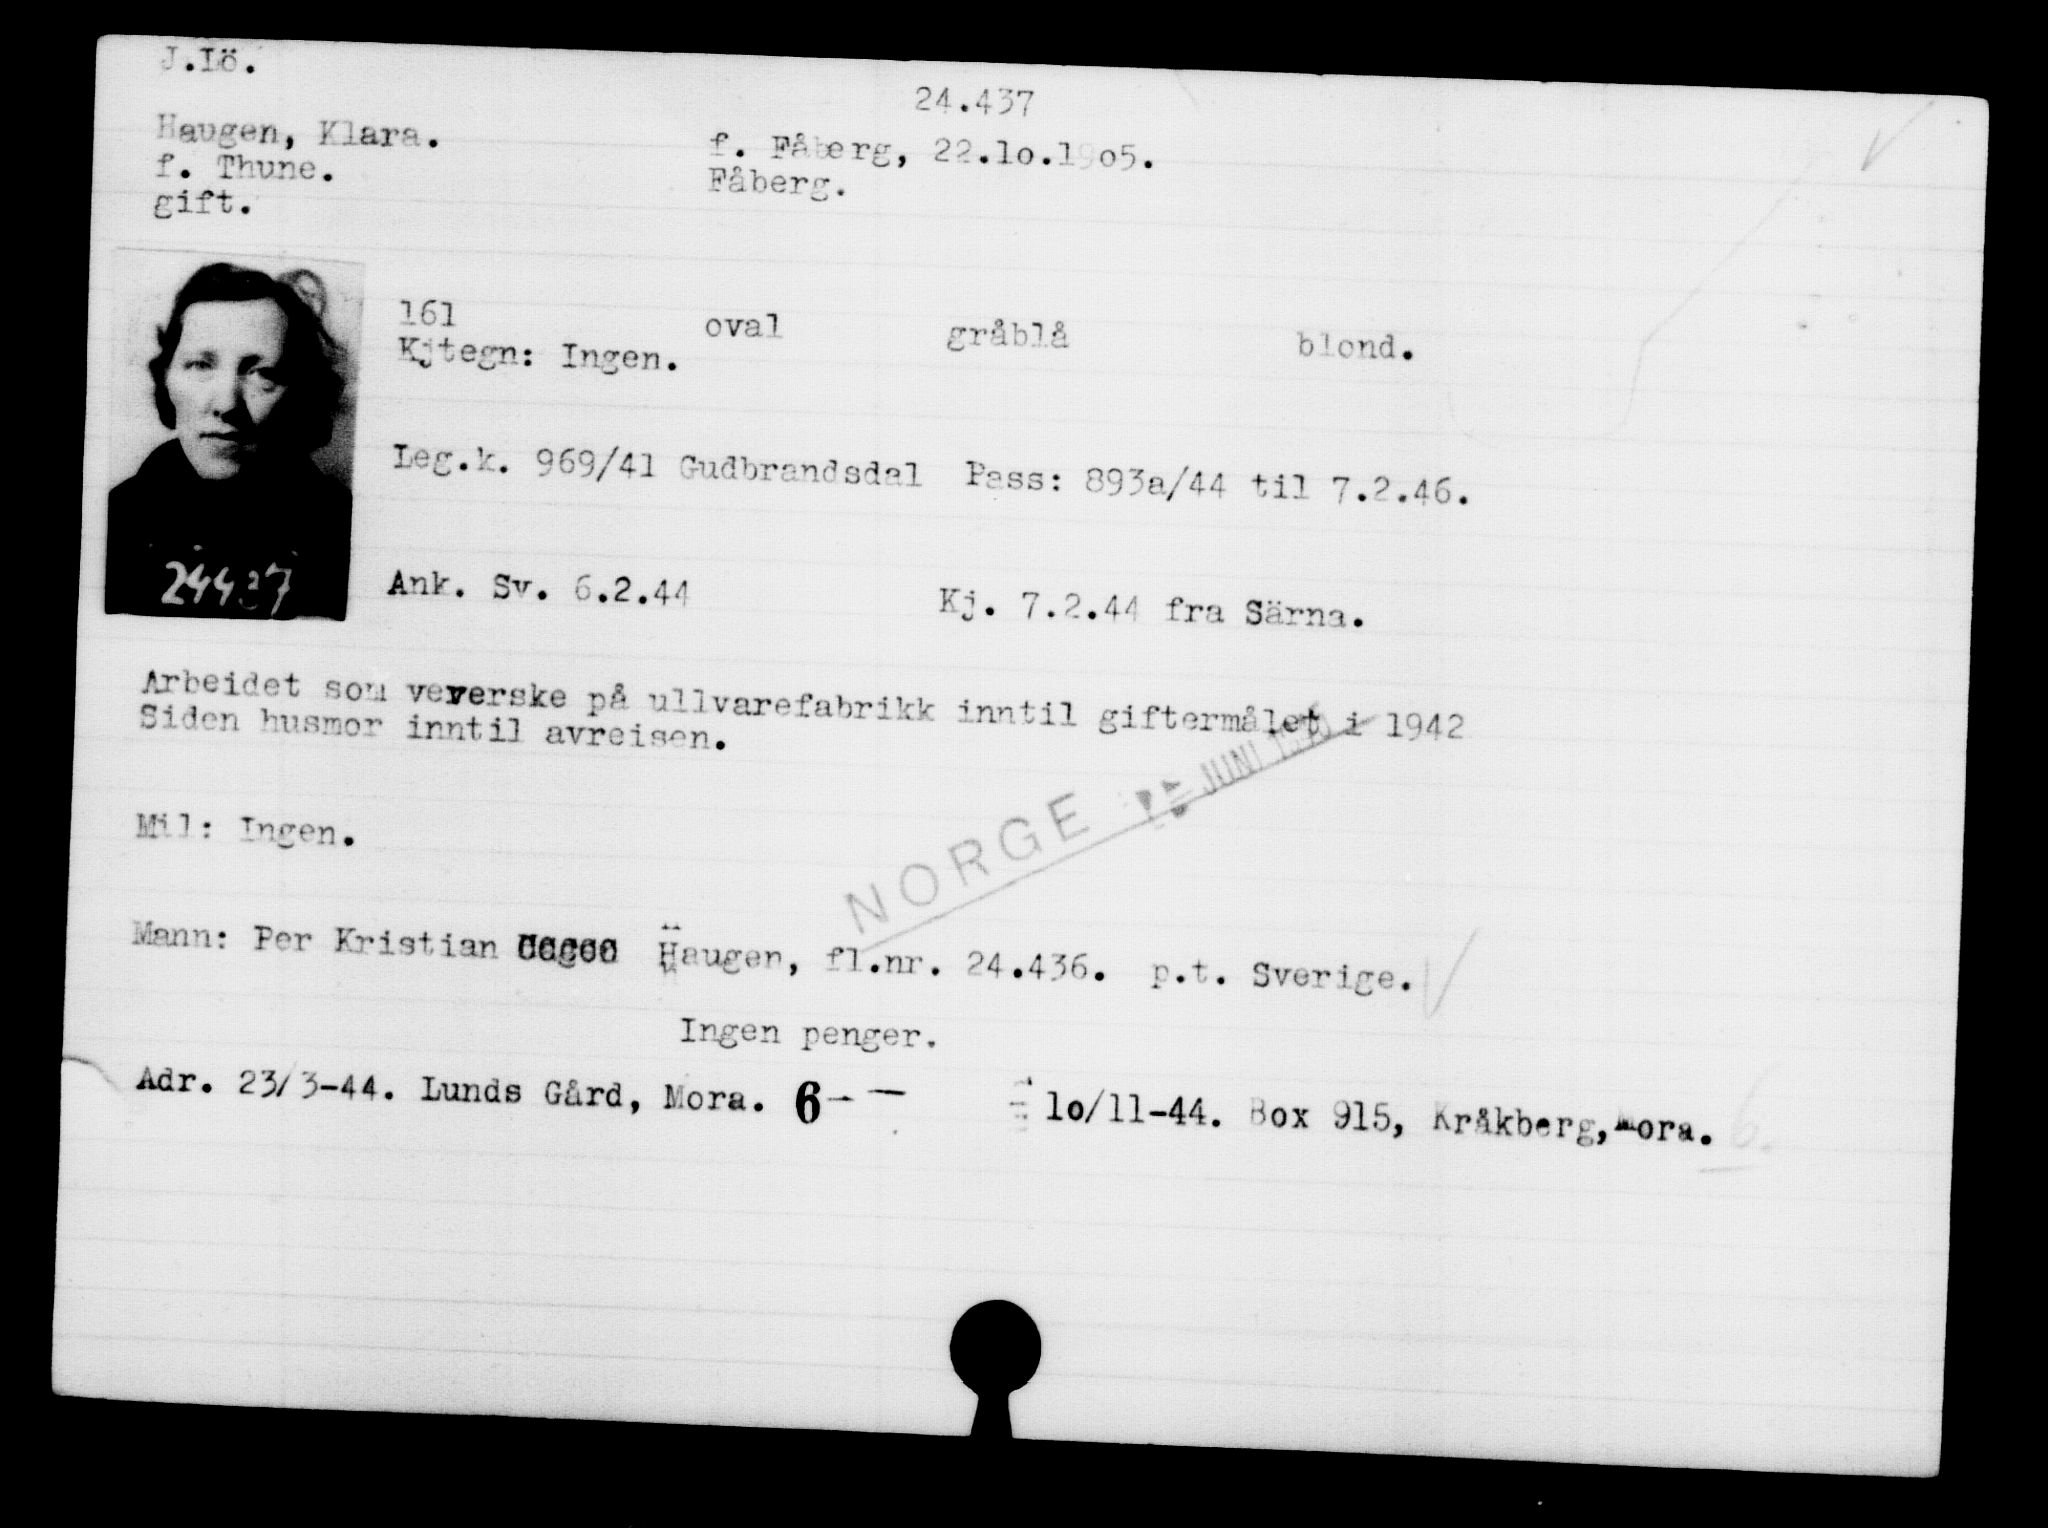 J.Lö.
24.437
Haugen, Klara.
f. Fåberg, 22.lo.19o5.
f. Thune.
Fåberg.
gift.
161 oval gråblå blond.
Kjtegn: Ingen.
Leg.k. 969/41 Gudbrandsdal Pass: 893a/44 til 7.2.46.
24437
Ank. Sv. 6.2.44 Kj. 7.2.44 fra Särna.
Arbeidet som veverske på ullvarefabrikk inntil giftermålet i 1942
Siden husmor inntil avreisen.
NORGE JUNI
Mil: Ingen.
Mann: Per Kristian Haugen, fl.nr. 24.436. p.t. Sverige.
Ingen penger.
Adr. 23/3-44. Lunds Gård, Mora. 6- — lo/11-44. Box 915, Kråkberg, Mora. 6.